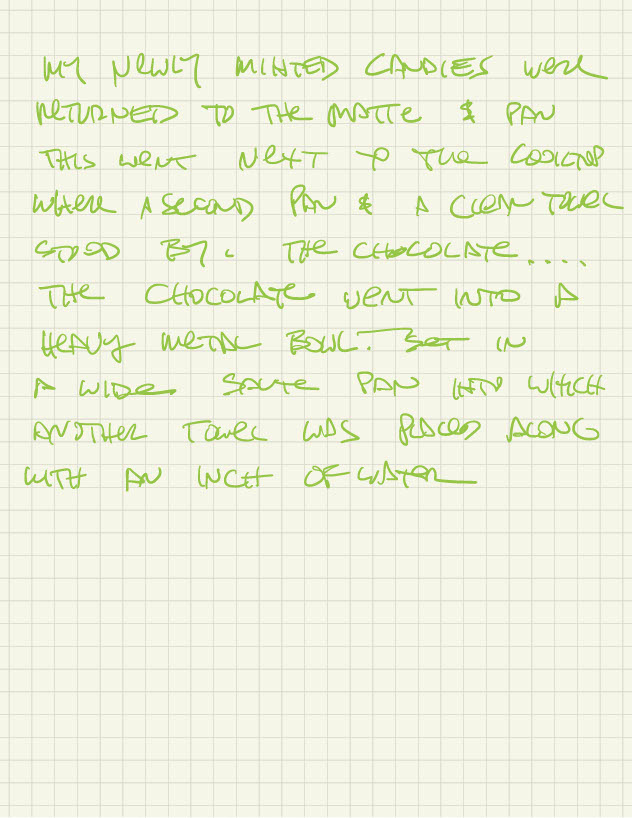 MY NEWLY MINTED CANDIES WERE
RETURNED TO THE MATTE & PAN
THIS WENT NEXT TO THE COOKTOP
WHERE A SECOND PAN & A CLEAN TOWEL
STOOD BY. THE CHOCOLATE....
THE CHOCOLATE WENT INTO A
HEAVY METAL BOWL. SET IN
A WIDE SAUTE PAN INTO WHICH
ANOTHER TOWEL WAS PLACED ALONG
WITH AN INCH OF WATER